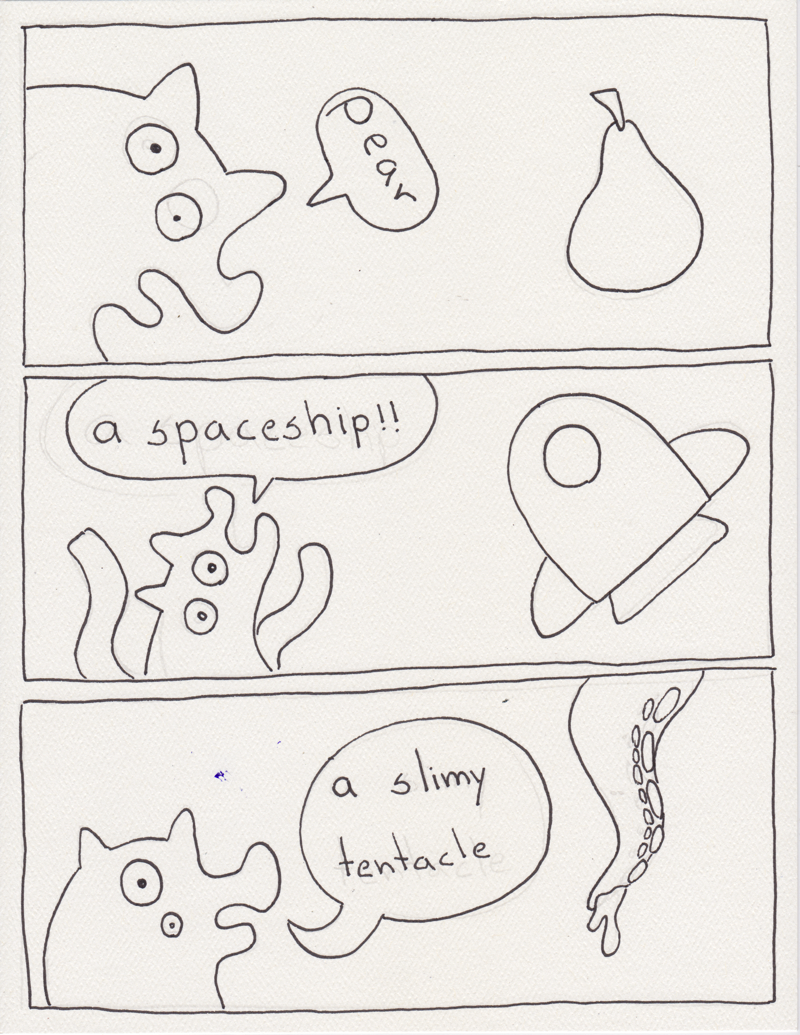 pear
a spaceship!!
a slimy
tentacle